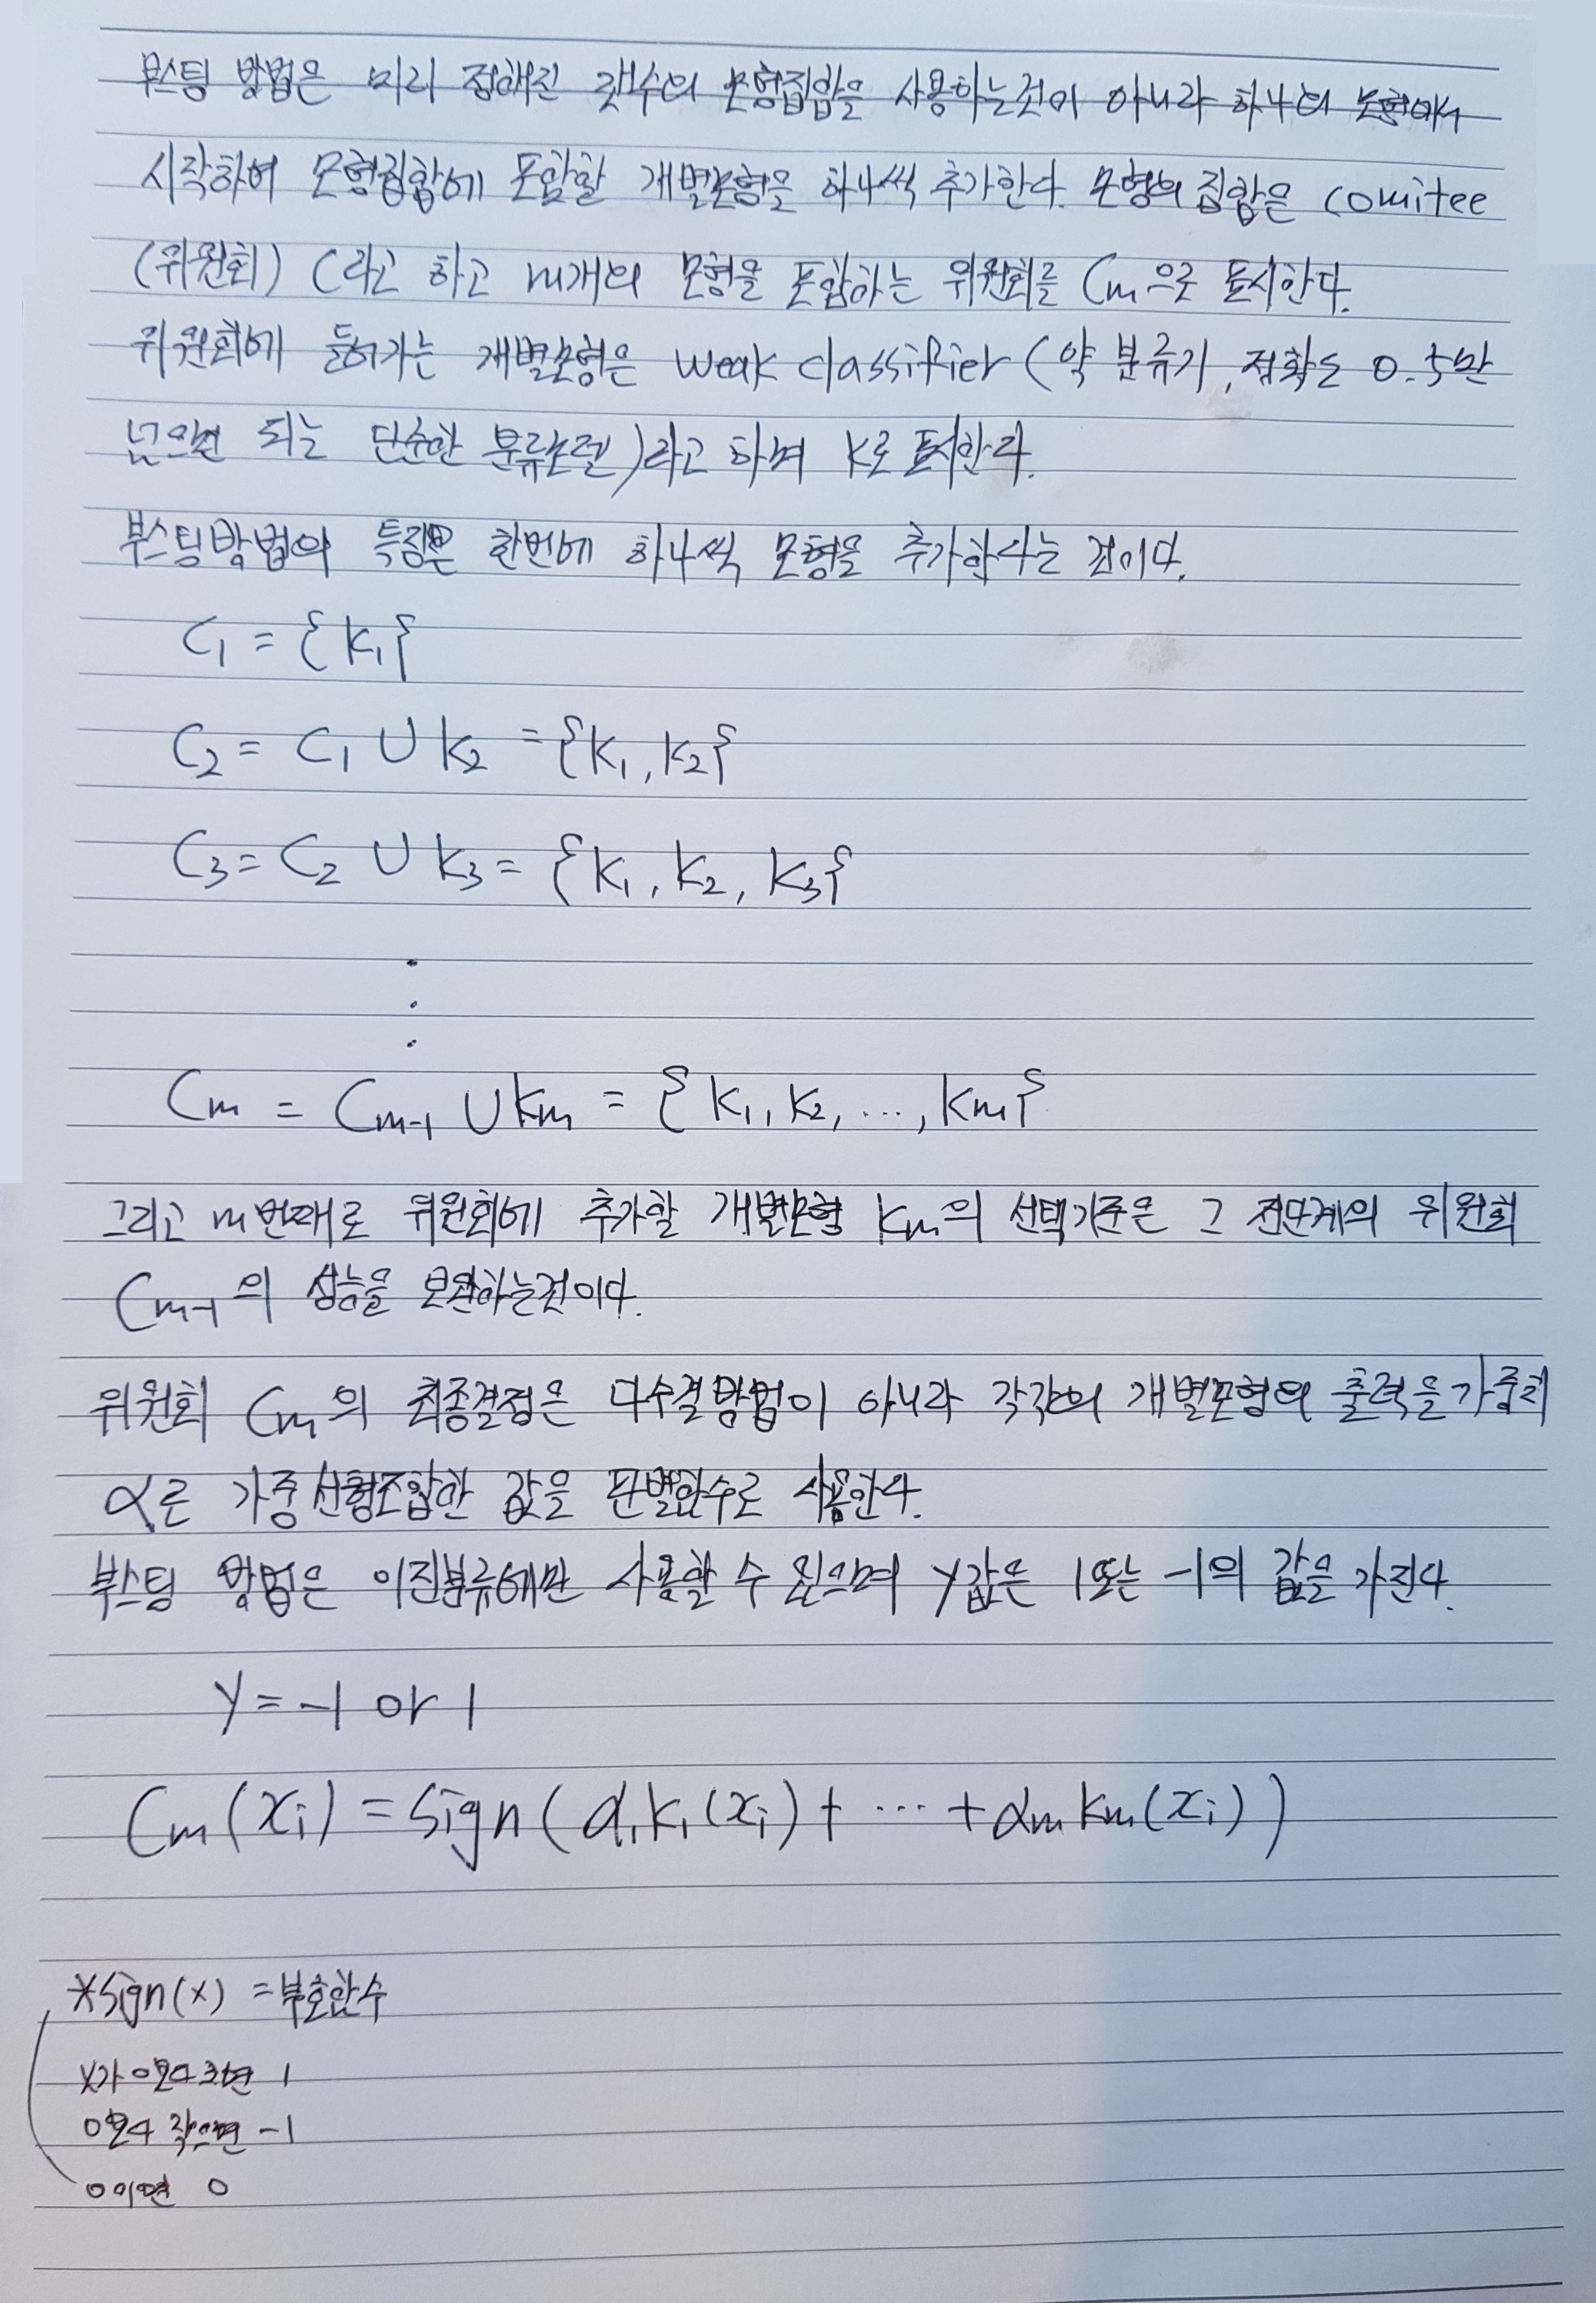 부스팅 방법은 미리 정해진 갯수의 모형집합을 사용하는것이 아니라 하나의 모형에서
시작하여 모형집합에 포함할 개별모형을 하나씩 추가한다. 모형의 집합은 comitee
(위원회) C라고 하고 m개의 모형을 포함하는 위원회를 Cm으로 표시한다.
위원회에 들어가는 개별모형은 weak classifier (약 분류기, 정확도 0.5만
넘으면 되는 단순한 분류모델)라고 하며 K로 표시한다.
부스팅방법의 특징은 한번에 하나씩 모형을 추가한다는 것이다.
C₁ = {K₁}
C₂ = C₁ ∪ k₂ = {K₁, K₂}
C₃ = C₂ ∪ k₃ = {K₁, K₂, K₃}
⋮
Cm = Cm-1 ∪ km = {K₁, K₂, ..., Km}
그리고 m번째로 위원회에 추가할 개별모형 km의 선택기준은 그 전단계의 위원회
Cm-1의 성능을 보완하는것이다.
위원회 Cm의 최종결정은 다수결방법이 아니라 각각의 개별모형의 출력을 가중치
α로 가중선형조합한 값을 판별함수로 사용한다.
부스팅 방법은 이진분류에만 사용할 수 있으며 y값은 1또는 -1의 값을 가진다.
y = -1 or 1
Cm(xi) = sign(α₁k₁(xi) + ... + αm km(xi))
*sign(x) = 부호함수
x가 0보다 크면 1
0보다 작으면 -1
0이면 0